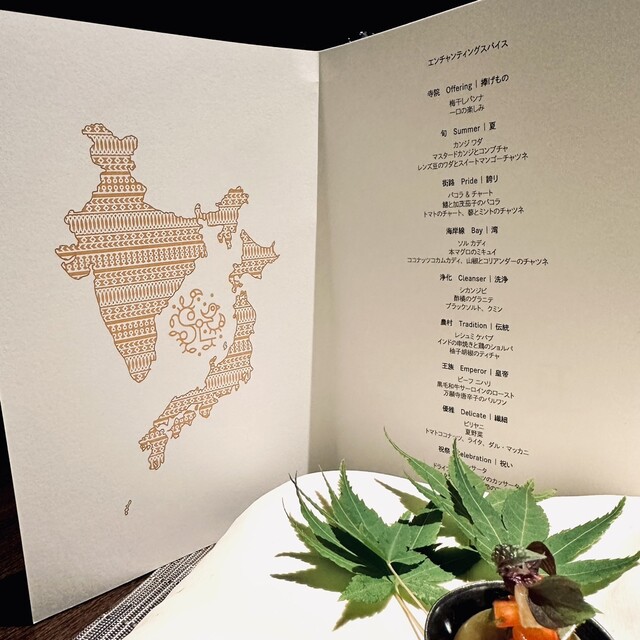 エンチャンティングスパイス
寺院 Offering | 捧げもの
梅干しパンナ
一口の楽しみ
旬 Summer | 夏
カンジ ワダ
マスタードカンジとコンブチャ
レンズ豆のワダとスイートマンゴーチャツネ
街路 Pride | 誇り
パコラ & チャート
鱧と加茂茄子のパコラ
トマトのチャート、蓼とミントのチャツネ
海岸線 Bay | 湾
ソル カディ
本マグロのミキュイ
ココナッツコカムカディ、山椒とコリアンダーのチャツネ
浄化 Cleanser | 洗浄
シカンジビ
酢橘のグラニテ
ブラックソルト、クミン
農村 Tradition | 伝統
レシュミ ケバブ
インドの串焼きと鶏のショルバ
柚子胡椒のティチャ
王族 Emperor | 皇帝
ビーフ ニハリ
黒毛和牛サーロインのロースト
万願寺唐辛子のバルワン
優雅 Delicate | 繊細
ビリヤニ
夏野菜
トマトココナッツ、ライタ、ダル・マッカニ
祝祭 Celebration | 祝い